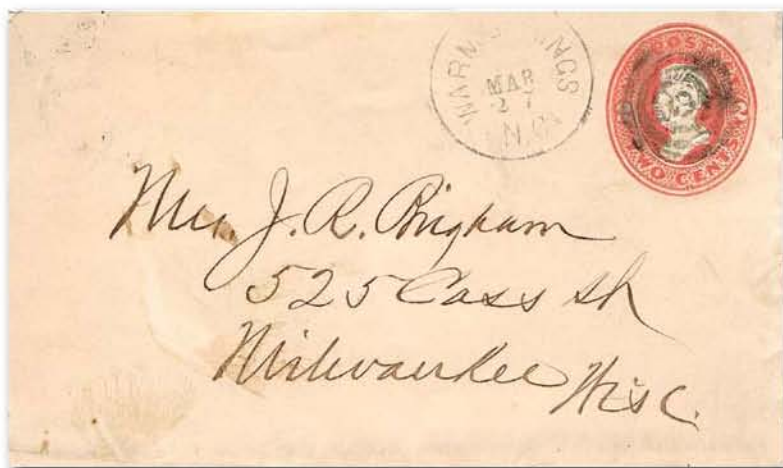 WARM SPRINGS
MAR
27
N.C.
POSTAGE
TWO CENTS
Mrs. J. R. Brigham
525 Cass St
Milwaukee Wisc.